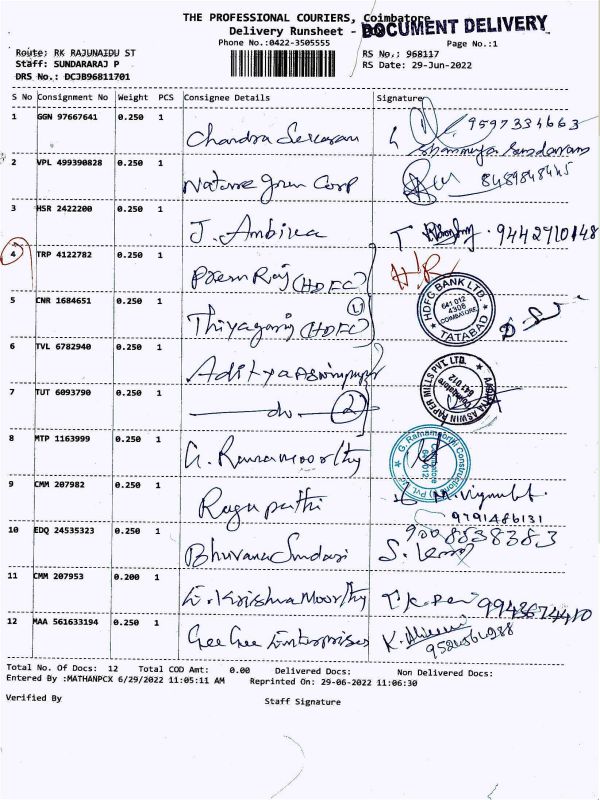 THE PROFESSIONAL COURIERS, Coimbatore
DOCUMENT DELIVERY
Delivery Runsheet -
Phone No.:0422-3505555
Page No.:1
Route: RK RAJUNAIDU ST
RS No.: 968117
Staff: SUNDARARAJ P
RS Date: 29-Jun-2022
DRS No.: DCJB96811701
S No Consignment No Weight PCS Consignee Details Signature
1 GGN 97667641 0.250 1 Chandra Sekaran 9597334663
2 VPL 499390828 0.250 1 Nature Green Corp 8489848445
3 HSR 2422200 0.250 1 J. Ambika 9442710148
4 TRP 4122782 0.250 1 Prem Raj (HDFC) H.R
HDFC BANK LTD. 641 012 4308 COIMBATORE TATABAD
5 CNR 1684651 0.250 1 Thiyagaraj (HDFC)
6 TVL 6782940 0.250 1 Aditya Aswin paper
ADITYA ASWIN PAPER MILLS PVT. LTD. Coimbatore 641 012
7 TUT 6093790 0.250 1 — do — 2
8 MTP 1163999 0.250 1 G. Ramamoorthy
G. Ramamoorthi Constructions Pvt. Coimbatore 641 012
9 CMM 207982 0.250 1 Ragupathi M. Vignesh
9791486131
10 EDQ 24535323 0.250 1 Bhuvana Sundari 9008838383
11 CMM 207953 0.200 1 K. Krishna Moorthy 9943674410
12 MAA 561633194 0.250 1 Gee Gee Enterprises
Total No. Of Docs: 12 Total COD Amt: 0.00 Delivered Docs: Non Delivered Docs:
Entered By :MATHANPCX 6/29/2022 11:05:11 AM Reprinted On: 29-06-2022 11:06:30
Verified By Staff Signature